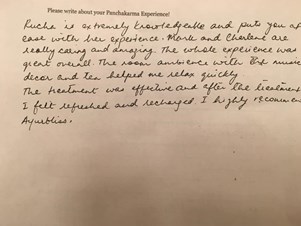 Please write about your Panchakarma Experience!
Rucha is extremely knowledgeable and puts you at
ease with her experience. Mark and Charlene are
really caring and amazing. The whole experience was
great overall. The room ambience with the music
decor and tea helped me relax quickly
The treatment was effective and after the treatment
I felt refreshed and recharged. I highly recommend
Ayurbliss.